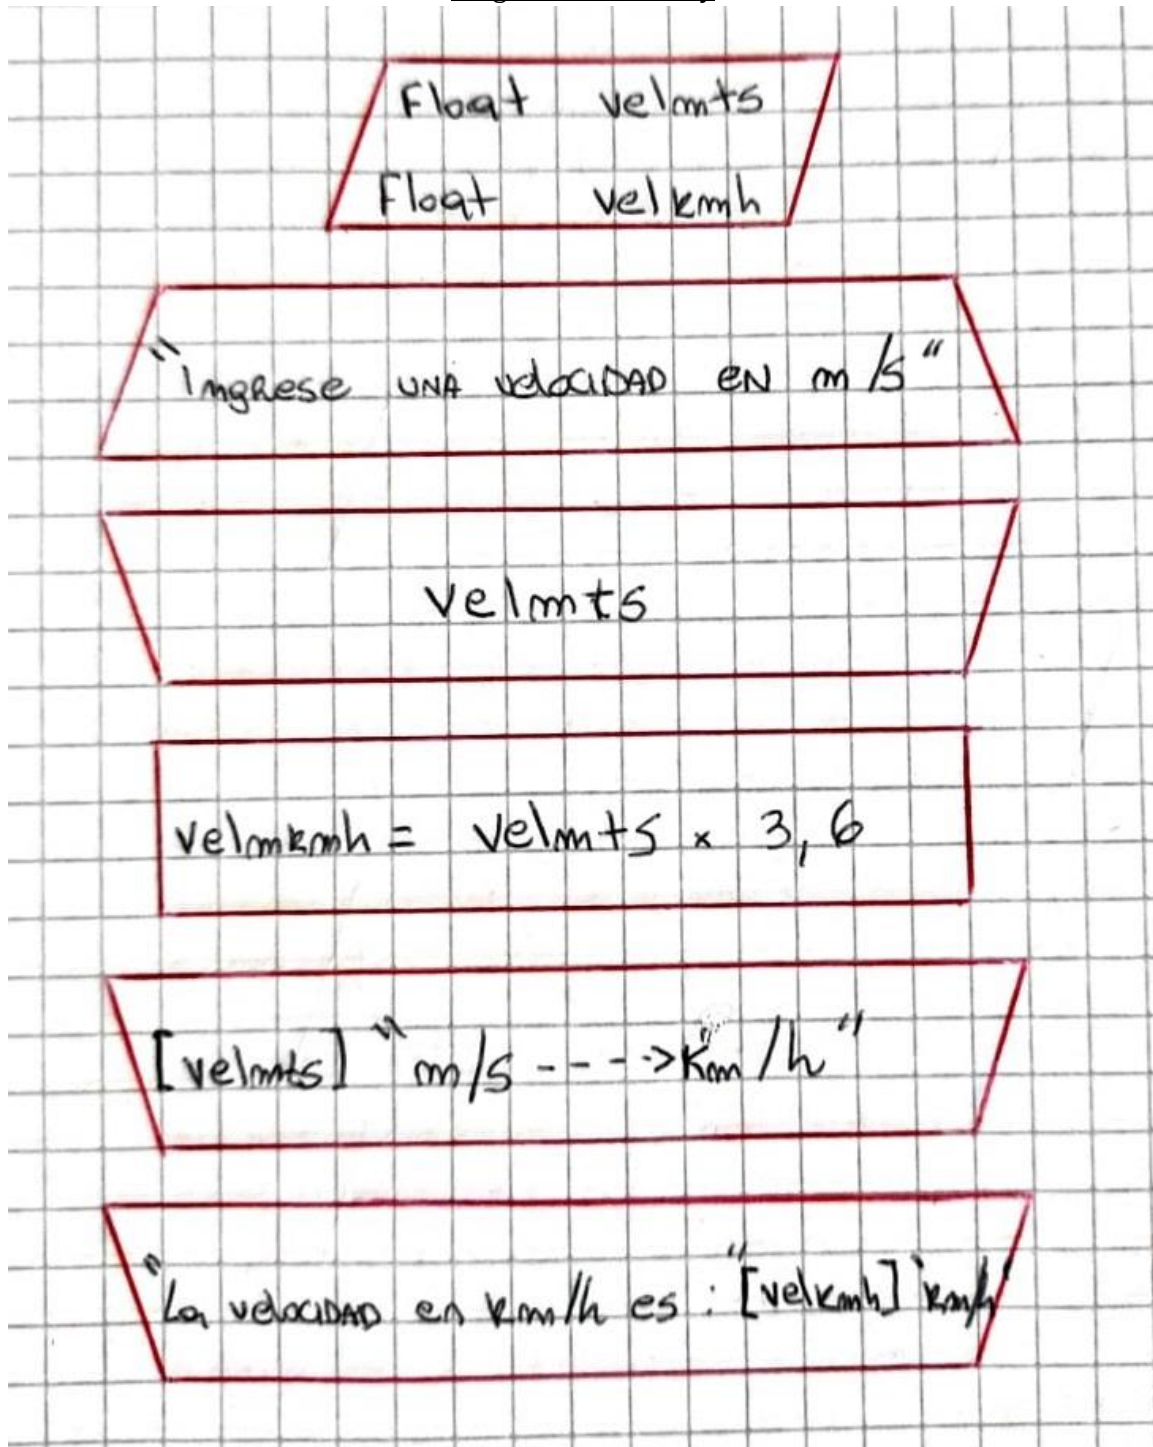 Float velmts
Float velkmh
"Ingrese UNA velocidad EN m/s"
velmts
velmkmh = velmts x 3,6
[velmts] "m/s ----> km/h"
"La velocidad en km/h es : "[velkmh] "km/h"